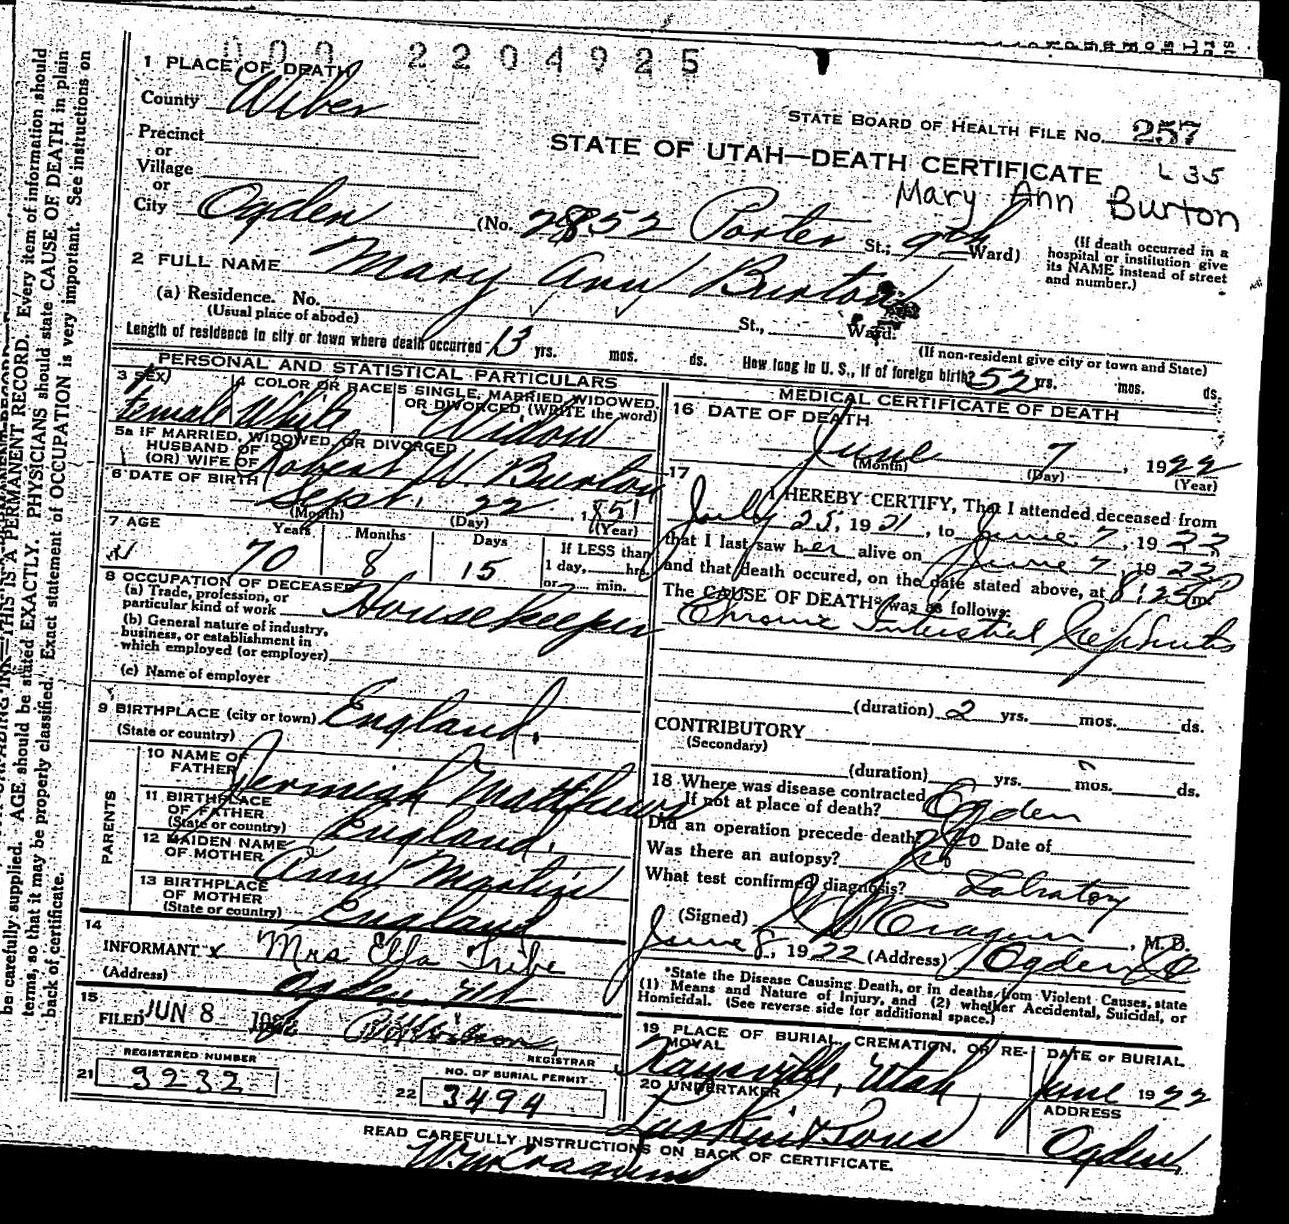 000 2204925
1 PLACE OF DEATH
County Wiber
STATE BOARD OF HEALTH FILE No. 257
Precinct
or
Village
or
STATE OF UTAH—DEATH CERTIFICATE
L 35
Mary Ann Burton
City Ogden (No. 2852 Porter St.; 9th Ward)
(If death occurred in a
hospital or institution give
its NAME instead of street
and number.)
2 FULL NAME Mary Ann Burton
(a) Residence. No. St., Ward.
(Usual place of abode)
(If non-resident give city or town and State)
Length of residence in city or town where death occurred 13 yrs. mos. ds. How long in U. S., if of foreign birth? 52 yrs. mos. ds.
PERSONAL AND STATISTICAL PARTICULARS
3 SEX
Female
4 COLOR OR RACE
White
5 SINGLE, MARRIED, WIDOWED,
OR DIVORCED (WRITE the word)
Widow
5a IF MARRIED, WIDOWED, OR DIVORCED
HUSBAND OF
(OR) WIFE OF Robert W. Burton
6 DATE OF BIRTH
Sept. 22 1851
(Month) (Day) (Year)
7 AGE
Years Months Days
70 8 15
If LESS than
1 day, hrs.
or min.
8 OCCUPATION OF DECEASED
(a) Trade, profession, or
particular kind of work Housekeeper
(b) General nature of industry,
business, or establishment in
which employed (or employer)
(c) Name of employer
9 BIRTHPLACE (city or town) England.
(State or country)
PARENTS
10 NAME OF
FATHER Jermiah Matthews
11 BIRTHPLACE
OF FATHER
(State or country) England.
12 MAIDEN NAME
OF MOTHER Ann Martin
13 BIRTHPLACE
OF MOTHER
(State or country) England
14
INFORMANT x Mrs Ella Tribe
(Address) Ogden, Ut
15
FILED JUN 8 1922
REGISTRAR
REGISTERED NUMBER
21 3232
NO. OF BURIAL PERMIT
22 3494
MEDICAL CERTIFICATE OF DEATH
16 DATE OF DEATH
June 7, 1922
(Month) (Day) (Year)
17
I HEREBY CERTIFY, That I attended deceased from
July 25, 1921, to June 7, 1922
that I last saw her alive on June 7, 1922
and that death occured, on the date stated above, at 8:25 P m.
The CAUSE OF DEATH* was as follows:
Chronic Interstial Nephritis
(duration) 2 yrs. mos. ds.
CONTRIBUTORY
(Secondary)
(duration) yrs. mos. ds.
18 Where was disease contracted
If not at place of death? Ogden
Did an operation precede death? No Date of
Was there an autopsy? No
What test confirmed diagnosis? Labratory
(Signed) Cragun, M. D.
June 8, 1922 (Address) Ogden
*State the Disease Causing Death, or in deaths from Violent Causes, state
(1) Means and Nature of Injury, and (2) whether Accidental, Suicidal, or
Homicidal. (See reverse side for additional space.)
19 PLACE OF BURIAL, CREMATION, OR RE-
MOVAL
Kaysville, Utah
DATE OF BURIAL
June 1922
20 UNDERTAKER
Larkin & Sons
ADDRESS
Ogden
READ CAREFULLY INSTRUCTIONS ON BACK OF CERTIFICATE.
Wm Cragun
THIS IS A PERMANENT RECORD. Every item of information should
be carefully supplied. AGE should be stated EXACTLY. PHYSICIANS should state CAUSE OF DEATH in plain
terms, so that it may be properly classified. Exact statement of OCCUPATION is very important. See instructions on
back of certificate.